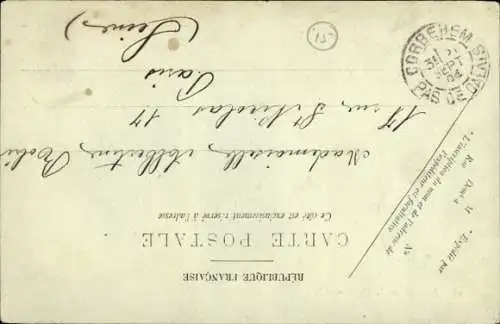 RÉPUBLIQUE FRANÇAISE
CARTE POSTALE
Ce côté est exclusivement réservé à l'adresse
* Expédié par
M
Dem^t à
Rue
N°
* L'inscription du nom et de l'adresse de
l'expéditeur est facultative
Mademoiselle Albertine
17 rue St Nicolas 17
Paris
(Seine)
CORBEHEM
SEPT
04
PAS DE CALAIS